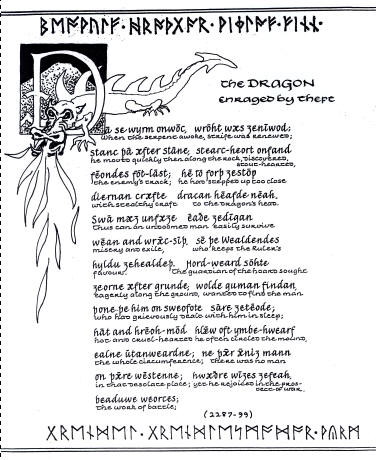 ᛒᛖᚩᚹᚢᛚᚠ·ᚻᚱᚩᚦᚷᚪᚱ·ᚹᛁᚷᛚᚪᚠ·ᚠᛁᚾᚾ·
the DRAGON
enraged by theft
Ða se wyrm onwōc, wrōht wæs ȝenīwod;
When the serpent awoke, strife was renewed;
stanc þā æfter stāne, stearc-heort onfand
he moved quickly then along the rock, discovered,
stout-hearted,
fēondes fōt-lāst; hē tō forþ ȝestōp
the enemy's track; he had stepped up too close
diernan cræfte dracan hēafde nēah.
with stealthy craft to the dragon's head.
Swā mæȝ unfæȝe ēaðe ȝedīgan
Thus can an undoomed man easily survive
wēan and wræc-sīþ, sē þe Wealdendes
misery and exile, who keeps the Ruler's
hyldu ȝehealdeþ. Hord-weard sōhte
favour. The guardian of the hoard sought
ȝeorne æfter grunde, wolde guman findan
eagerly along the ground, wanted to find the man
þone þe him on sweofote sāre ȝetēode;
who had grievously dealt with him in sleep;
hāt and hrēoh-mōd hlǣw oft ymbe-hwearf
hot and cruel-hearted he often circled the mound,
ealne ūtanweardne; ne þǣr ǣniȝ mann
the whole circumference; there was no man
on þǣre wēstenne; hwæðre wīȝes ȝefeah,
in that desolate place; yet he rejoiced in the pros-
pect of war,
beaduwe weorces;
the work of battle;
(2287-99)
ᚷᚱᛖᚾᛞᛖᛚ · ᚷᚱᛖᚾᛞᛚᛖᛋᛗᚩᛞᚩᚱ · ᚹᚣᚱᛗ